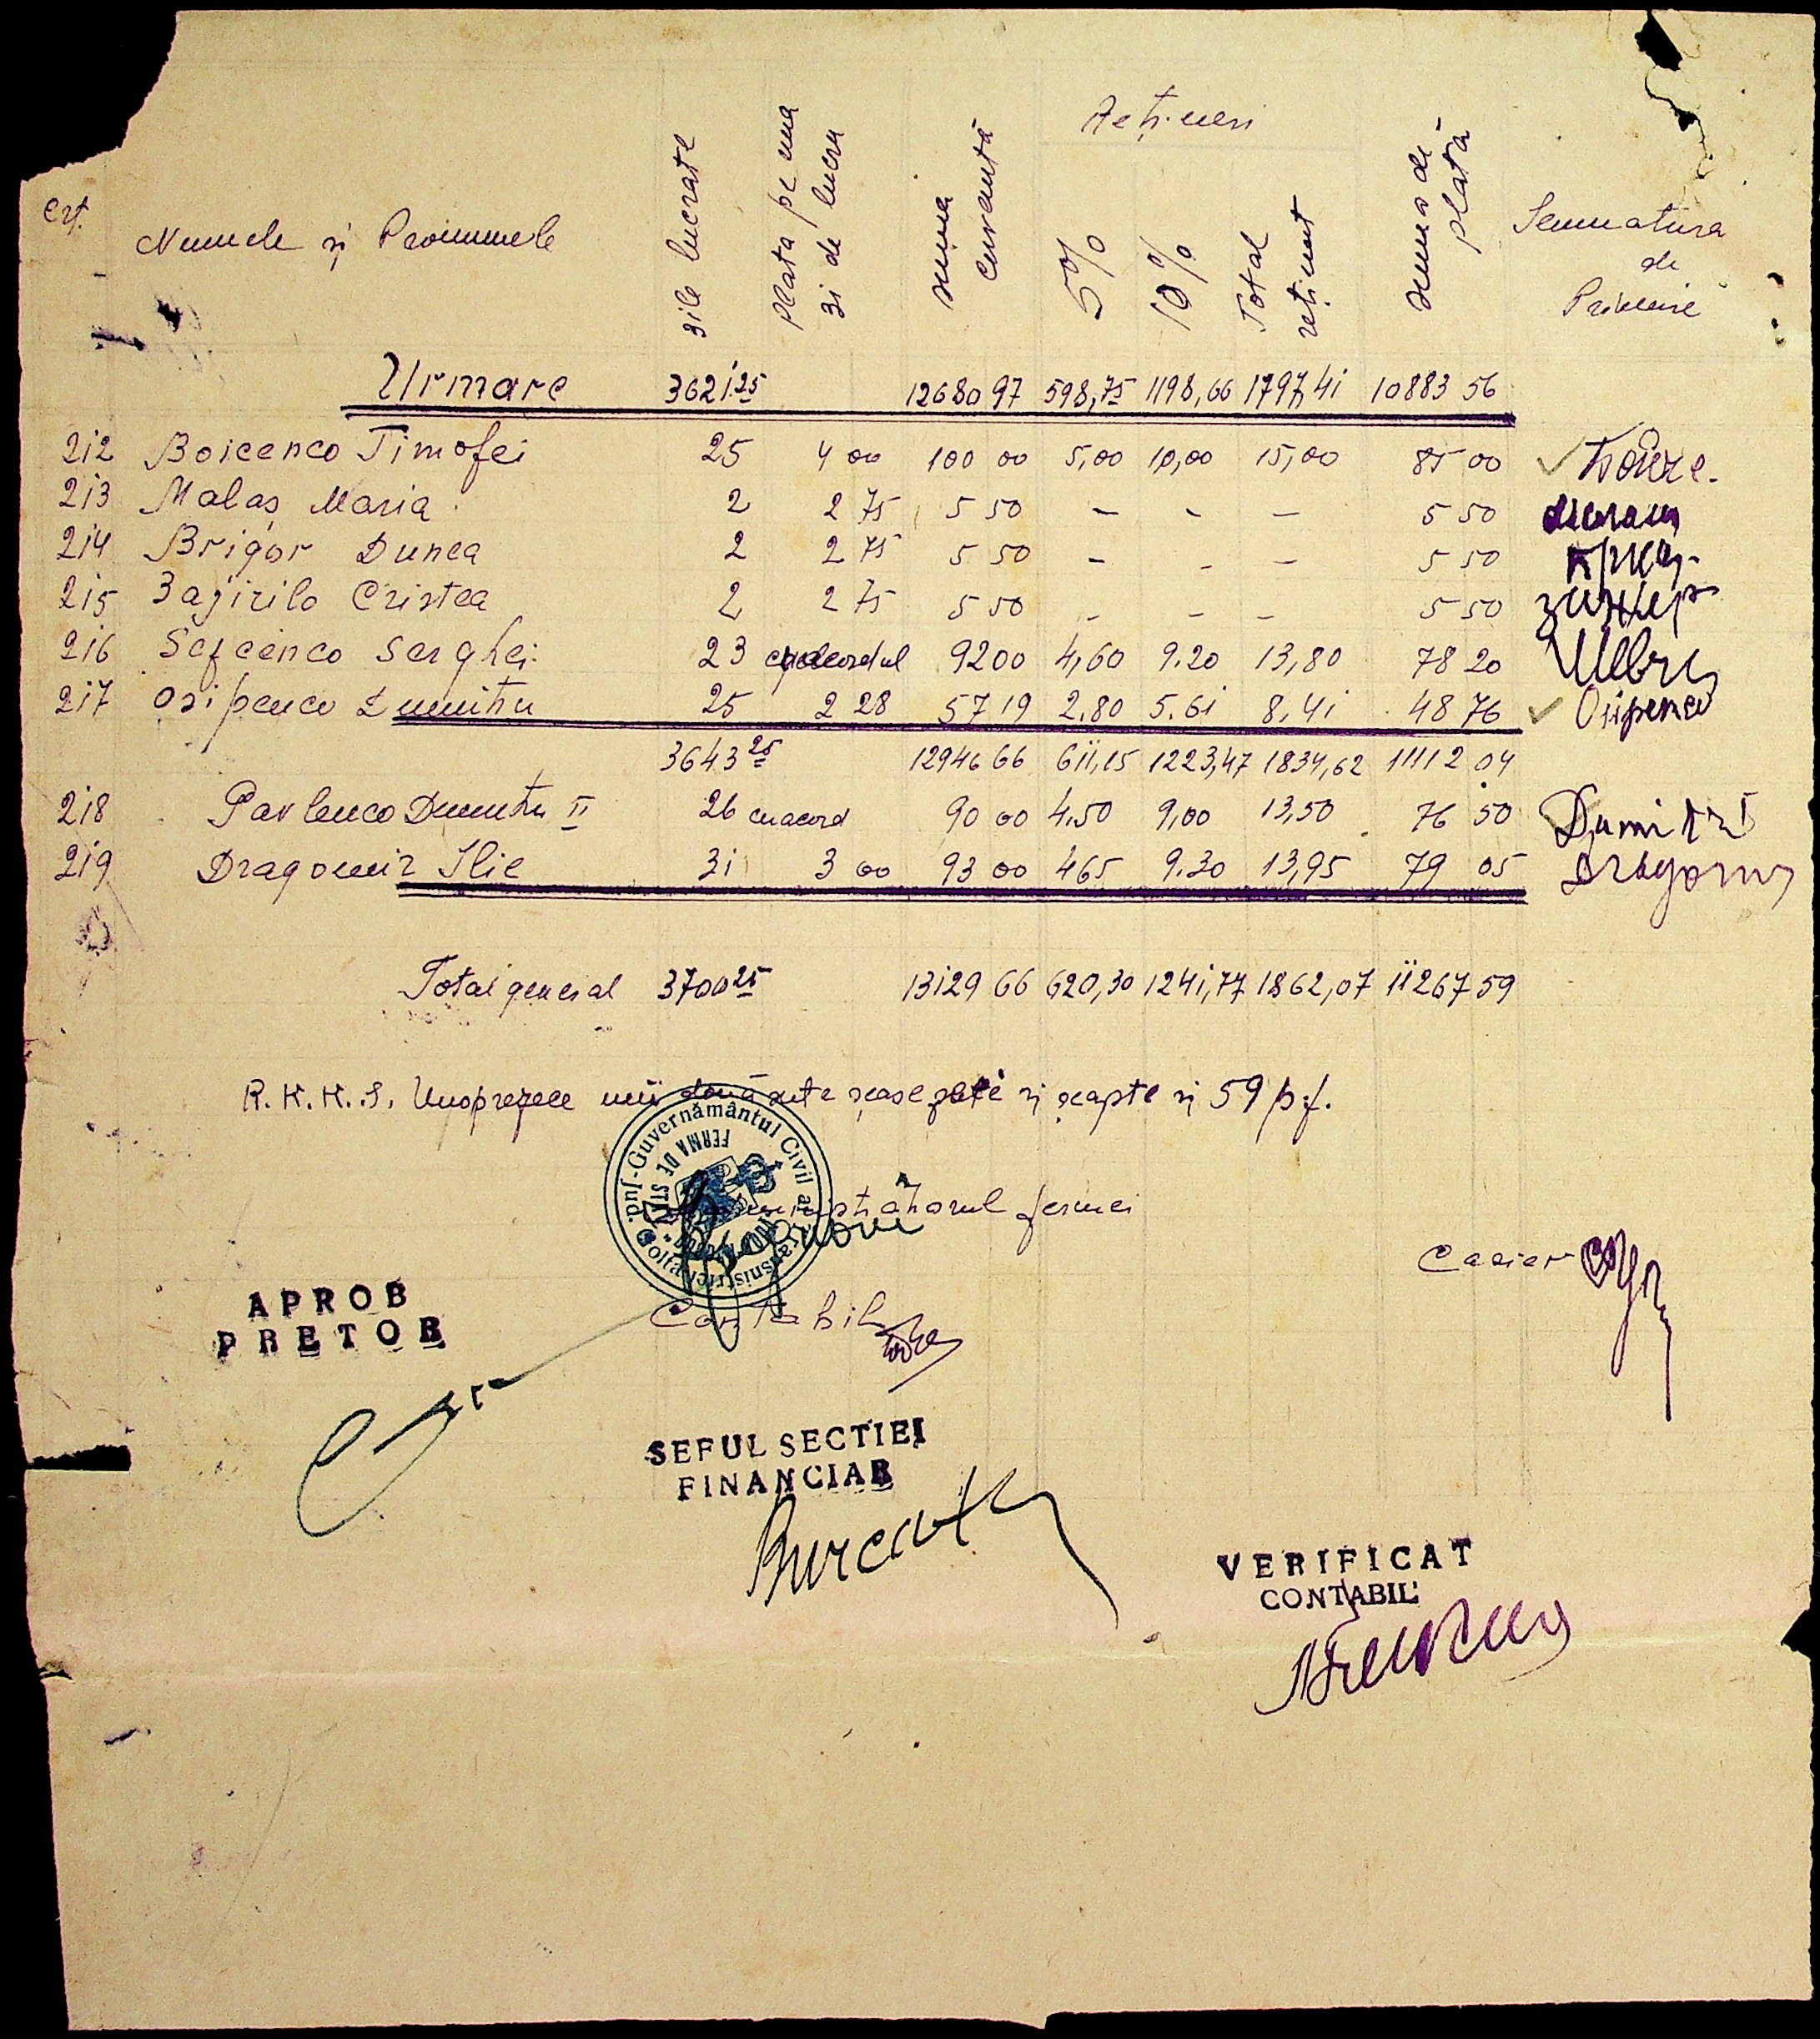 Rețineri
crt. Numele și Pronumele zile lucrate Plata pe una zi de lucru suma curantă 5% 10% Total reținut suma de plată Semnatura de Primire
Urmare 3621.25 12680 97 598,75 1198,66 1797,41 10883 56
212 Boicenco Timofei 25 4 00 100 00 5,00 10,00 15,00 85 00
213 Malaș Maria 2 2 75 5 50 - - - 5 50
214 Brigar Dunea 2 2 75 5 50 - - - 5 50
215 Zajirilo Cristea 2 2 75 5 50 - - - 5 50
216 Sefcenco Serghei 23 92 00 4,60 9.20 13,80 78 20
217 Osipenco Dumitru 25 2 28 57 19 2.80 5.61 8,41 48 76 Osipenco
3643 25 12946 66 611,15 1223,47 1834,62 11112 04
218 Pavlenco Dumitru II 26 cu acord 90 00 4.50 9,00 13,50 76 50 Dumitru
219 Dragomir Ilie 31 3 00 93 00 465 9.30 13,95 79 05 Dragomir
Total general 3700 25 13129 66 620,30 1241,77 1862,07 11267 59
R. K. K. S. Unsprezece mii două sute șase zeci și șapte și 59 p.f.
Guvernământul Civil al Transnistriei Jud. Golta
FERMA DE STAT
Administratorul fermei
Casier
Contabil
APROB
PRETOR
SEFUL SECTIEI
FINANCIAR
VERIFICAT
CONTABIL